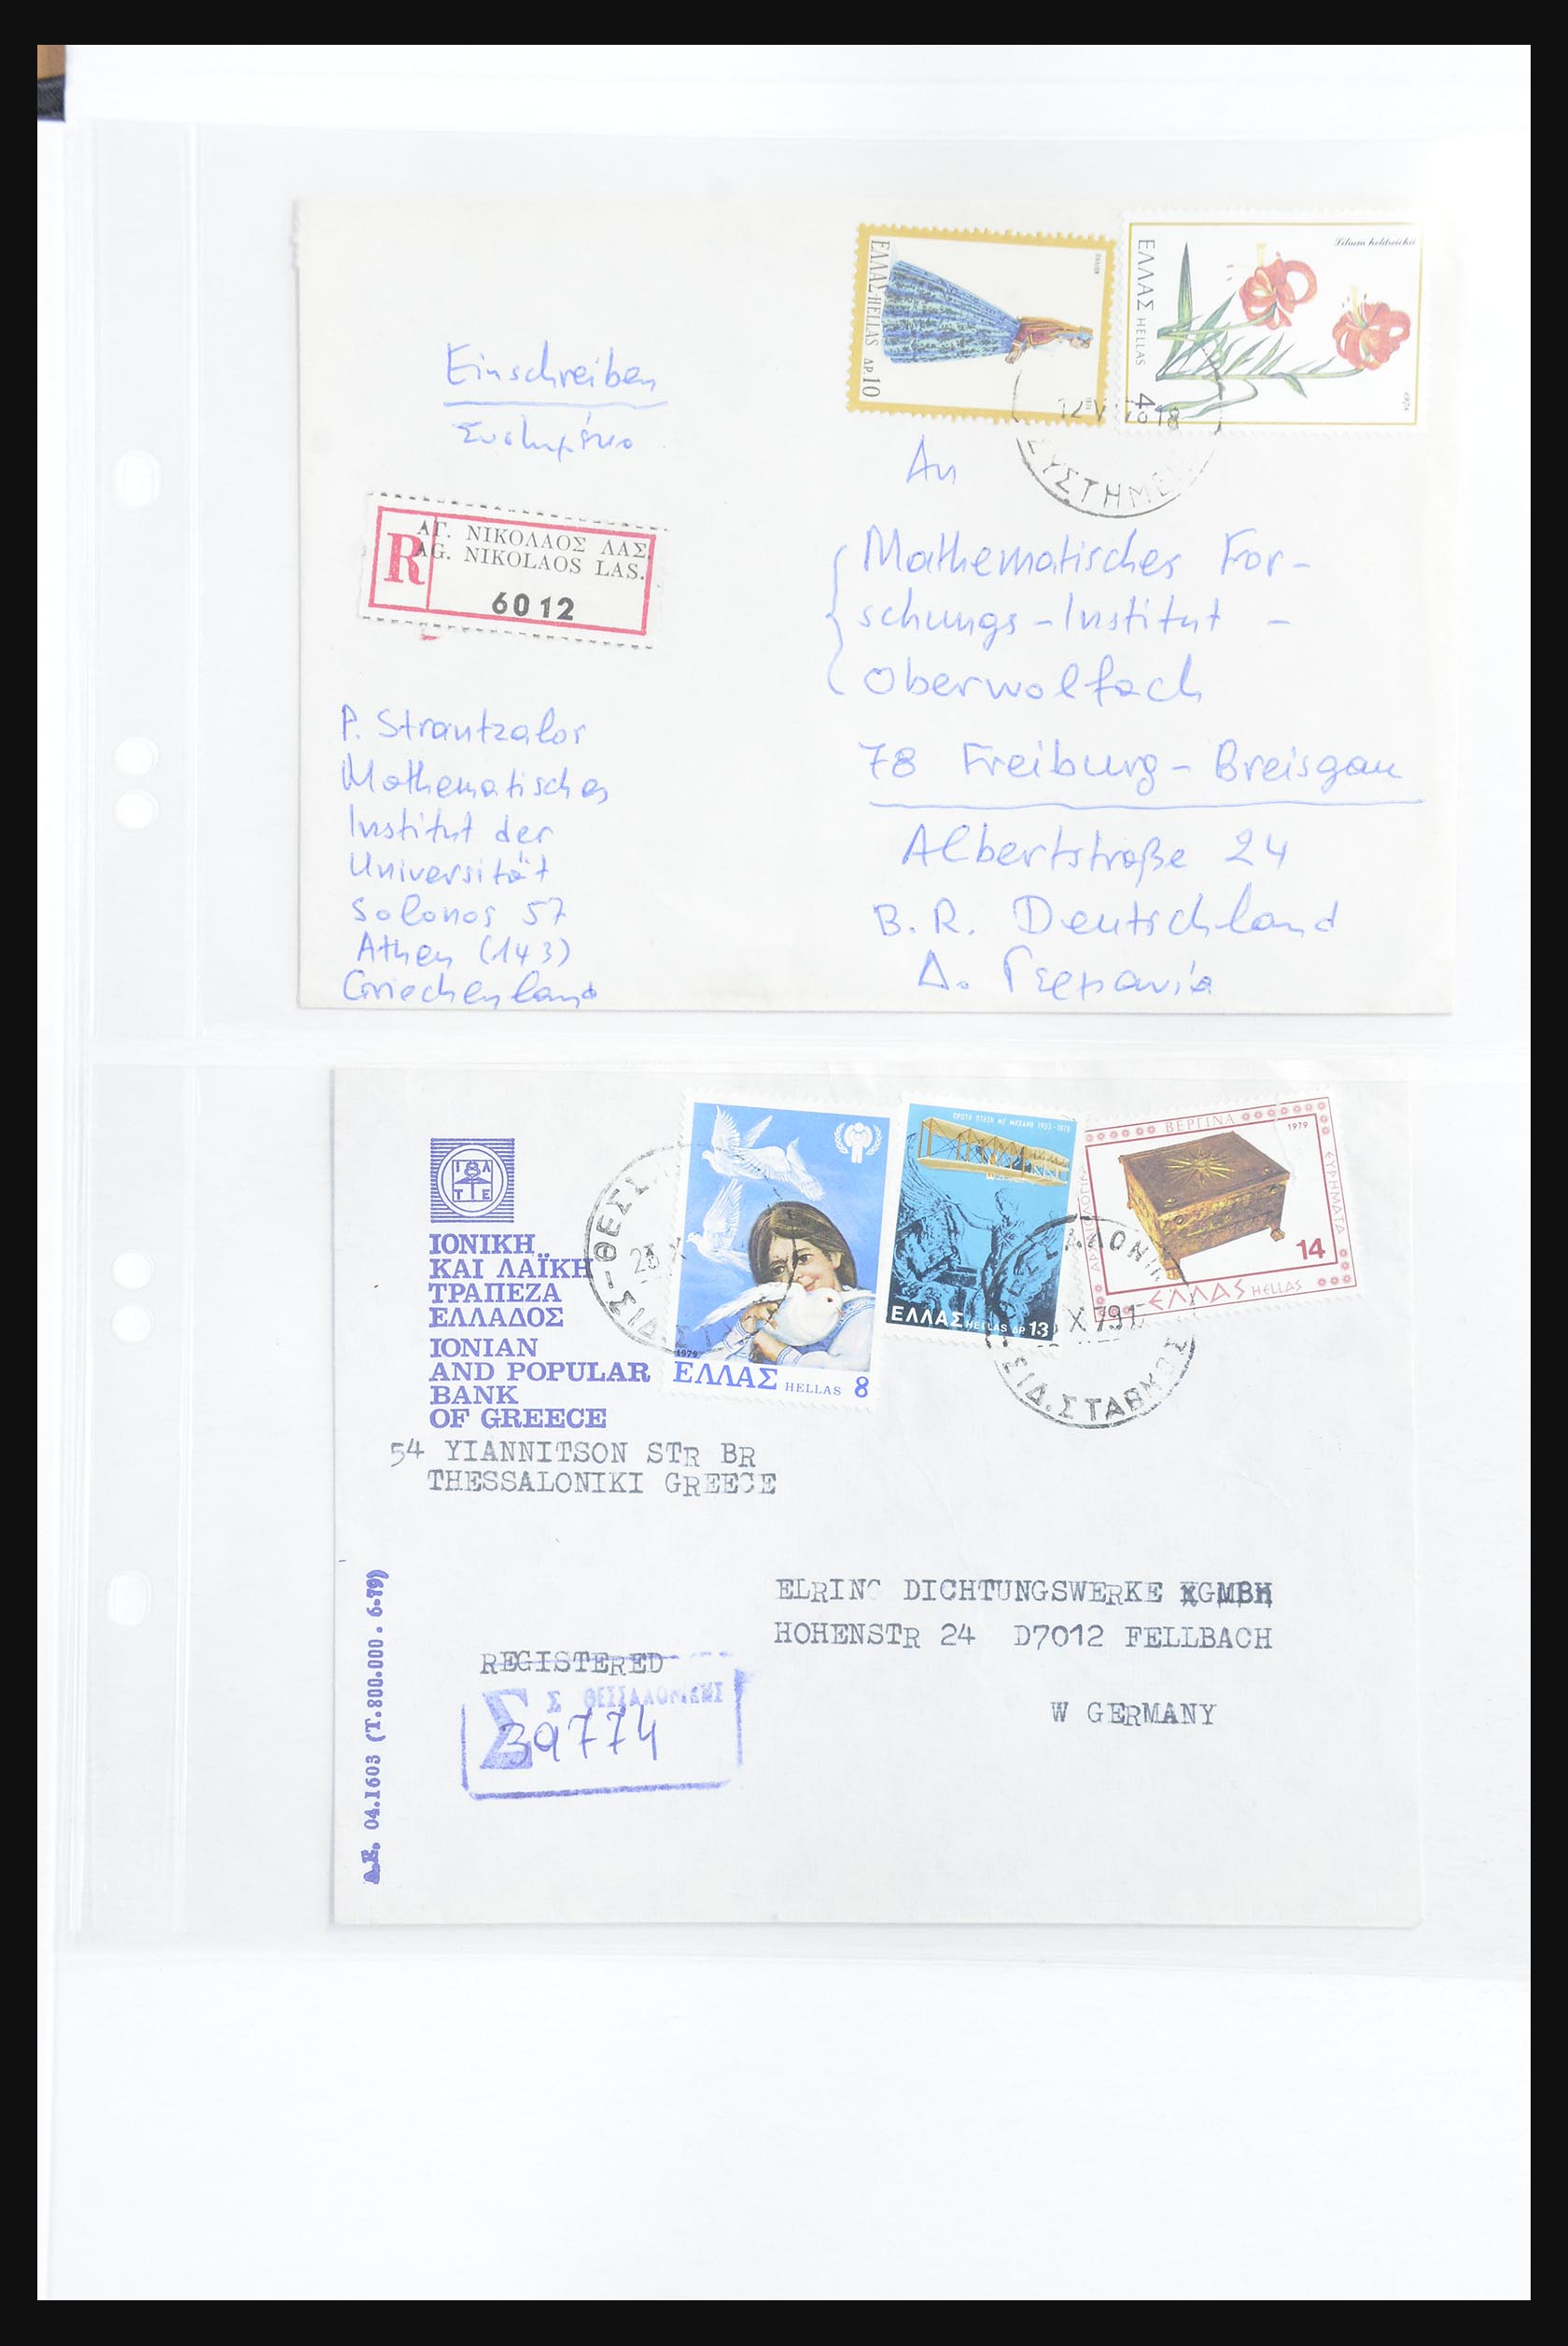 ΕΛΛΑΣ-HELLAS ΔΡ. 10
Lilium heldreichii
ΕΛΛΑΣ HELLAS 4
1978
Einschreiben
12 V 18
ΣΥΣΤΗΜΕ
An
R
ΑΓ. ΝΙΚΟΛΑΟΣ ΛΑΣ.
AG. NIKOLAOS LAS.
6012
Mathematisches For-
schungs-Institut -
Oberwolfach
78 Freiburg-Breisgau
Albertstraße 24
B. R. Deutschland
Δ. Γερμανία
P. Strantzalos
Mathematisches
Institut der
Universität
Solonos 57
Athen (143)
Griechenland
ΙΛΤΕ
ΙΟΝΙΚΗ
ΚΑΙ ΛΑΪΚΗ
ΤΡΑΠΕΖΑ
ΕΛΛΑΔΟΣ
IONIAN
AND POPULAR
BANK
OF GREECE
54 YIANNITSON STR BR
THESSALONIKI GREECE
ΘΕΣΣ
23
1979
ΕΛΛΑΣ HELLAS 8
ΠΡΩΤΗ ΠΤΗΣΗ ΜΕ ΜΗΧΑΝΗ 1903-1978
ΕΛΛΑΣ HELLAS ΔΡ. 13
ΒΕΡΓΙΝΑ
1979
ΕΥΡΗΜΑΤΑ
14
ΕΛΛΑΣ HELLAS
ΑΛΟΝΙΚ
X 79
ΣΙΔ. ΣΤΑΘΜΟΣ
ELRING DICHTUNGSWERKE GMBH
HOHENSTR 24 D7012 FELLBACH
W GERMANY
REGISTERED
Σ Σ ΘΕΣΣΑΛΟΝΙΚΗΣ
39774
Δ.Ε. 04.1603 (Τ.800.000. 6-79)